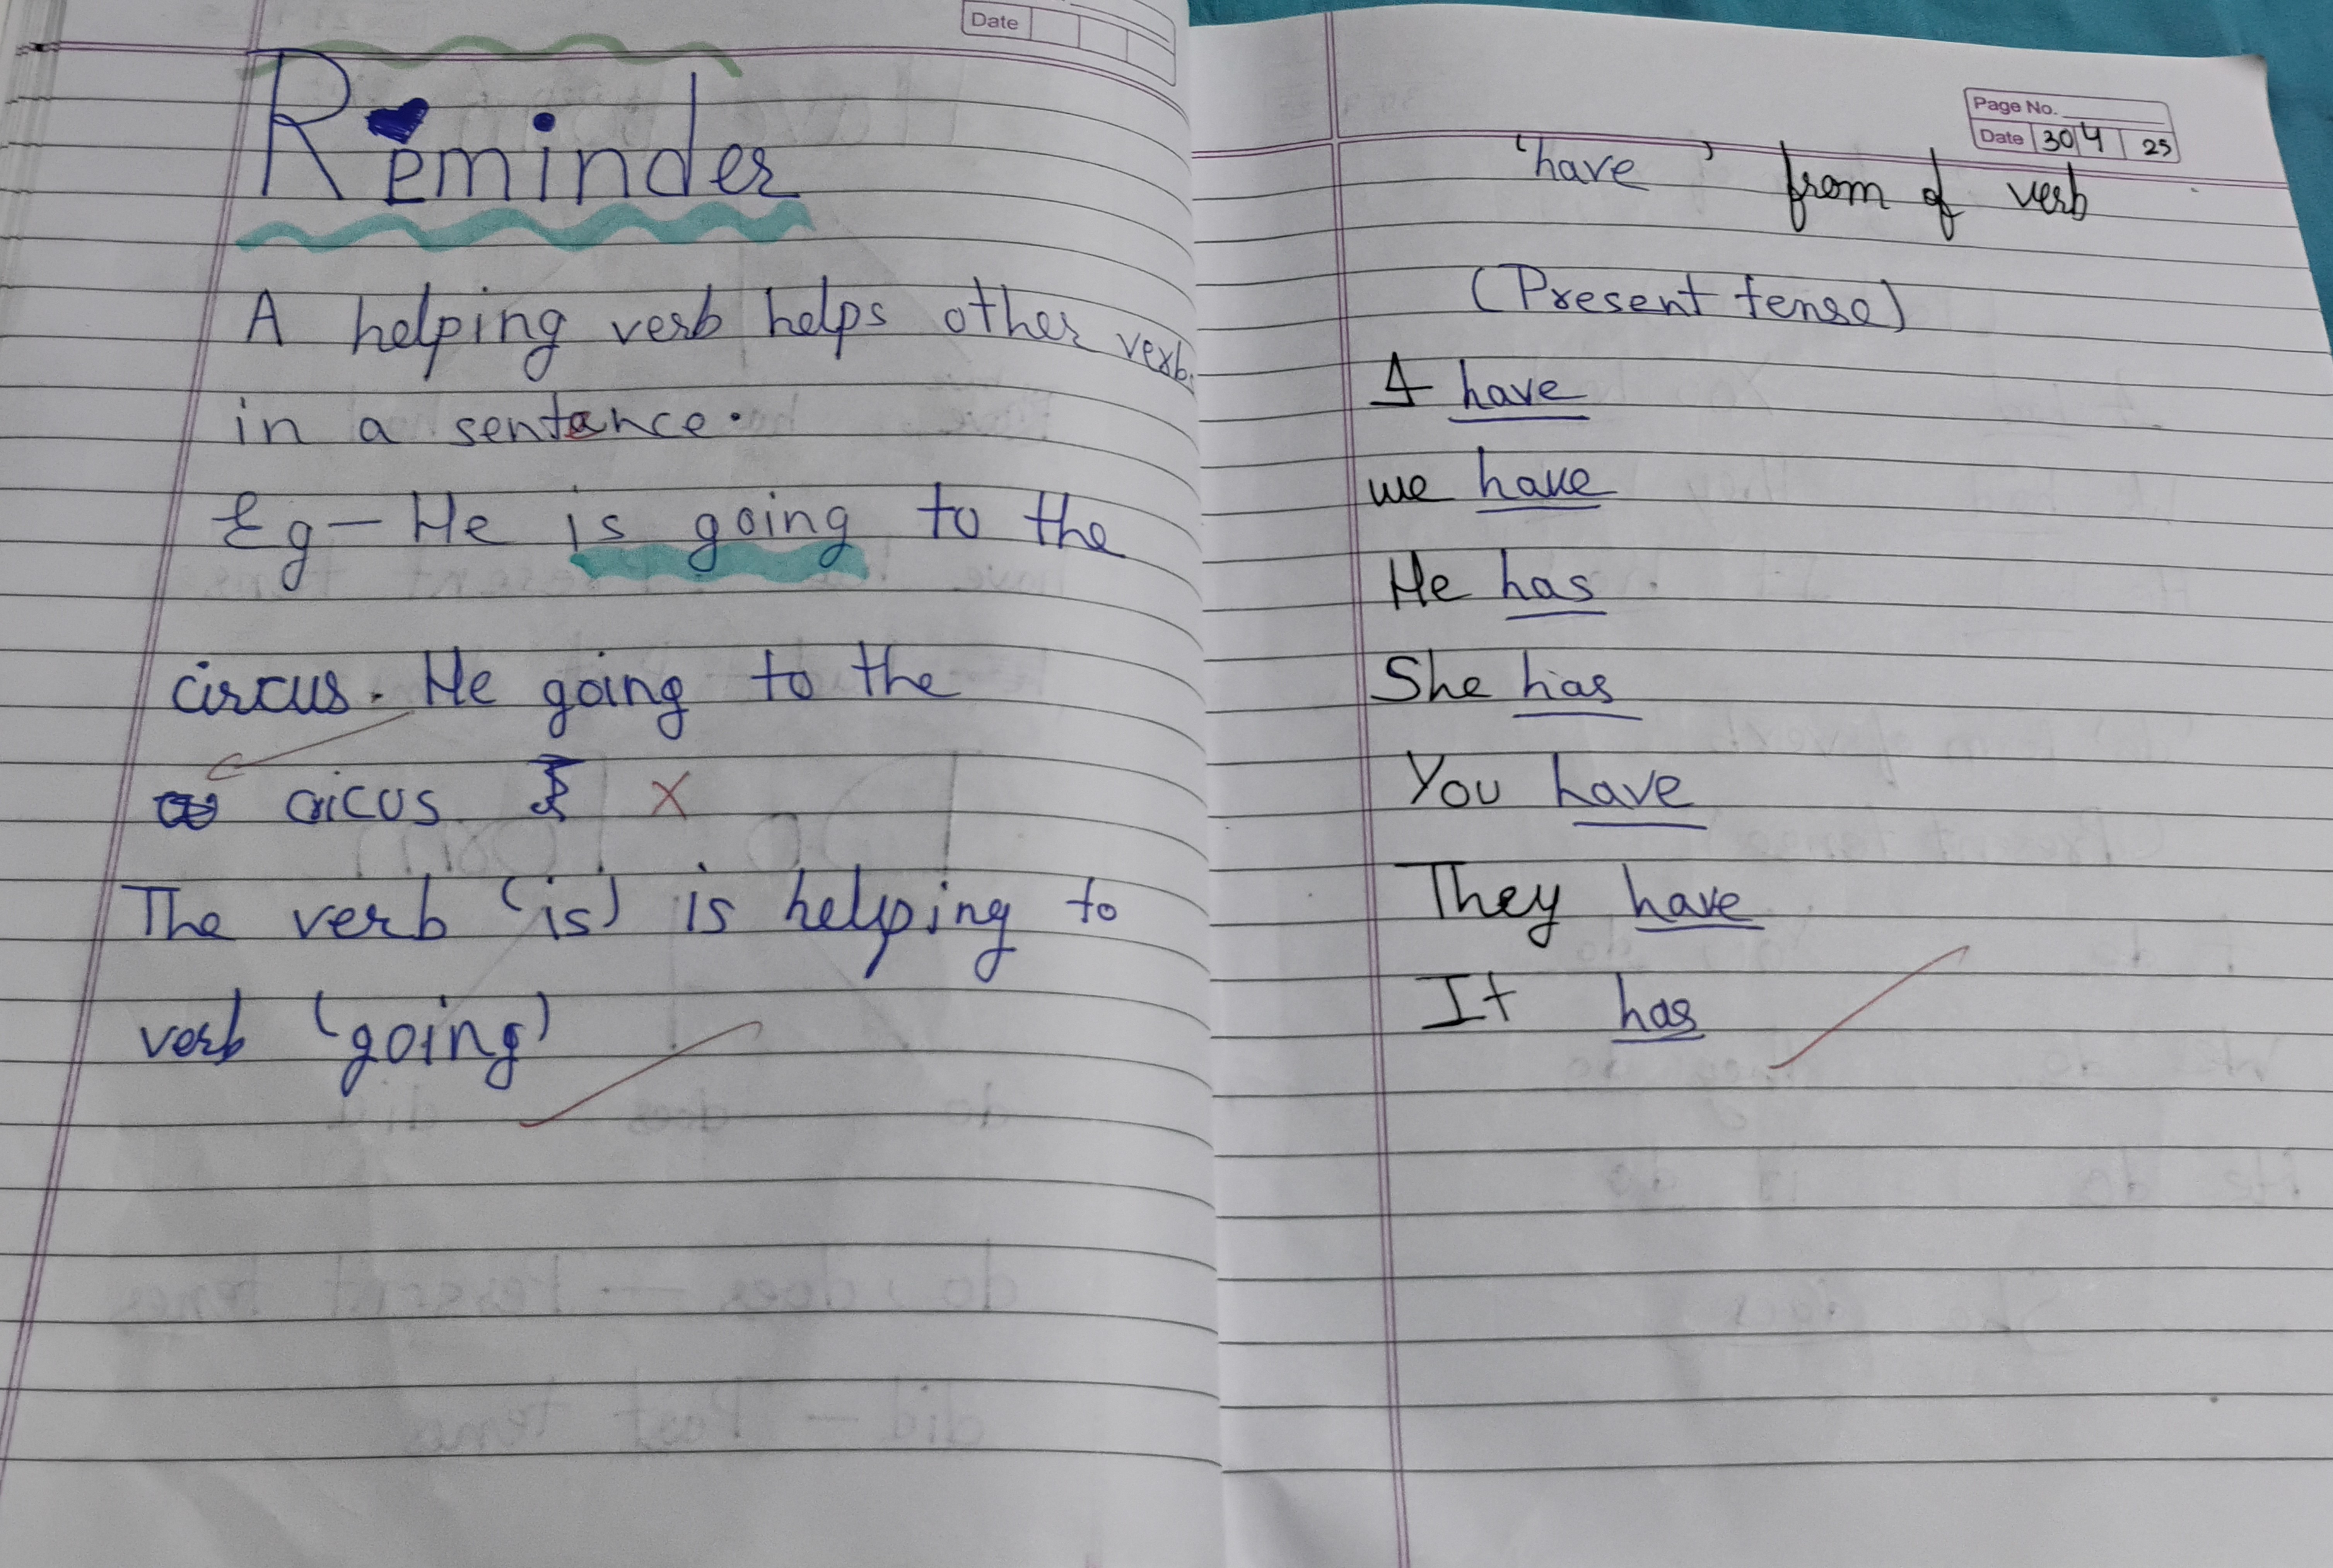 Date
Reminder
A helping verb helps other verb.
in a sentance.
Eg - He is going to the
circus. He going to the
cicus X
The verb 'is' is helping to
verb 'going'
Page No.
Date 30 4 25
'have' from of verb
(Present tense)
I have
we have
He has
She has
You have
They have
It has